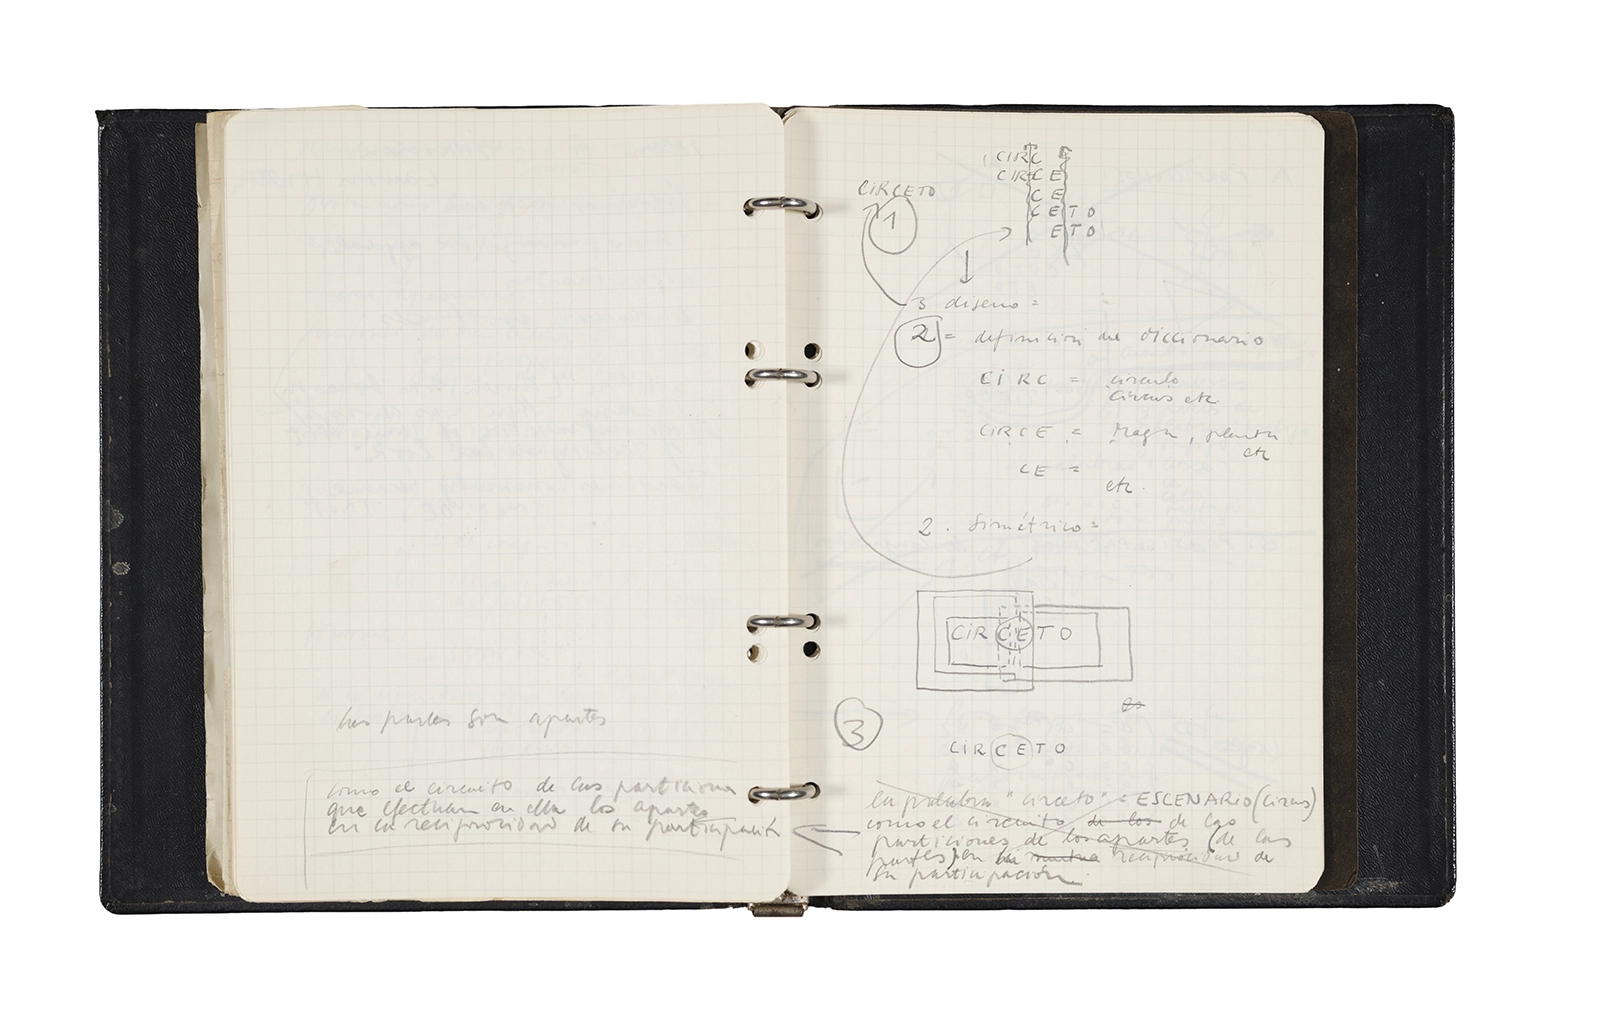 las partes son apartes
como el circuito de las particiones
que efectuan en ella los apartes
en la reciprocidad de su participación
CIRCETO
1
CIRC E
CIRCE
CE
CETO
ETO
3 diseno =
2 = definicion de diccionario
CIRC = circulo
circus etc.
CIRCE = maga, planta
etc
CE =
etc.
2. Simétrico =
CIRCETO
3
CIRCETO
la palabra "circeto" = ESCENARIO (circus)
como el circuito de los de las
particiones de los apartes (de las
partes) en la mutua reciprocidad de
su participación.